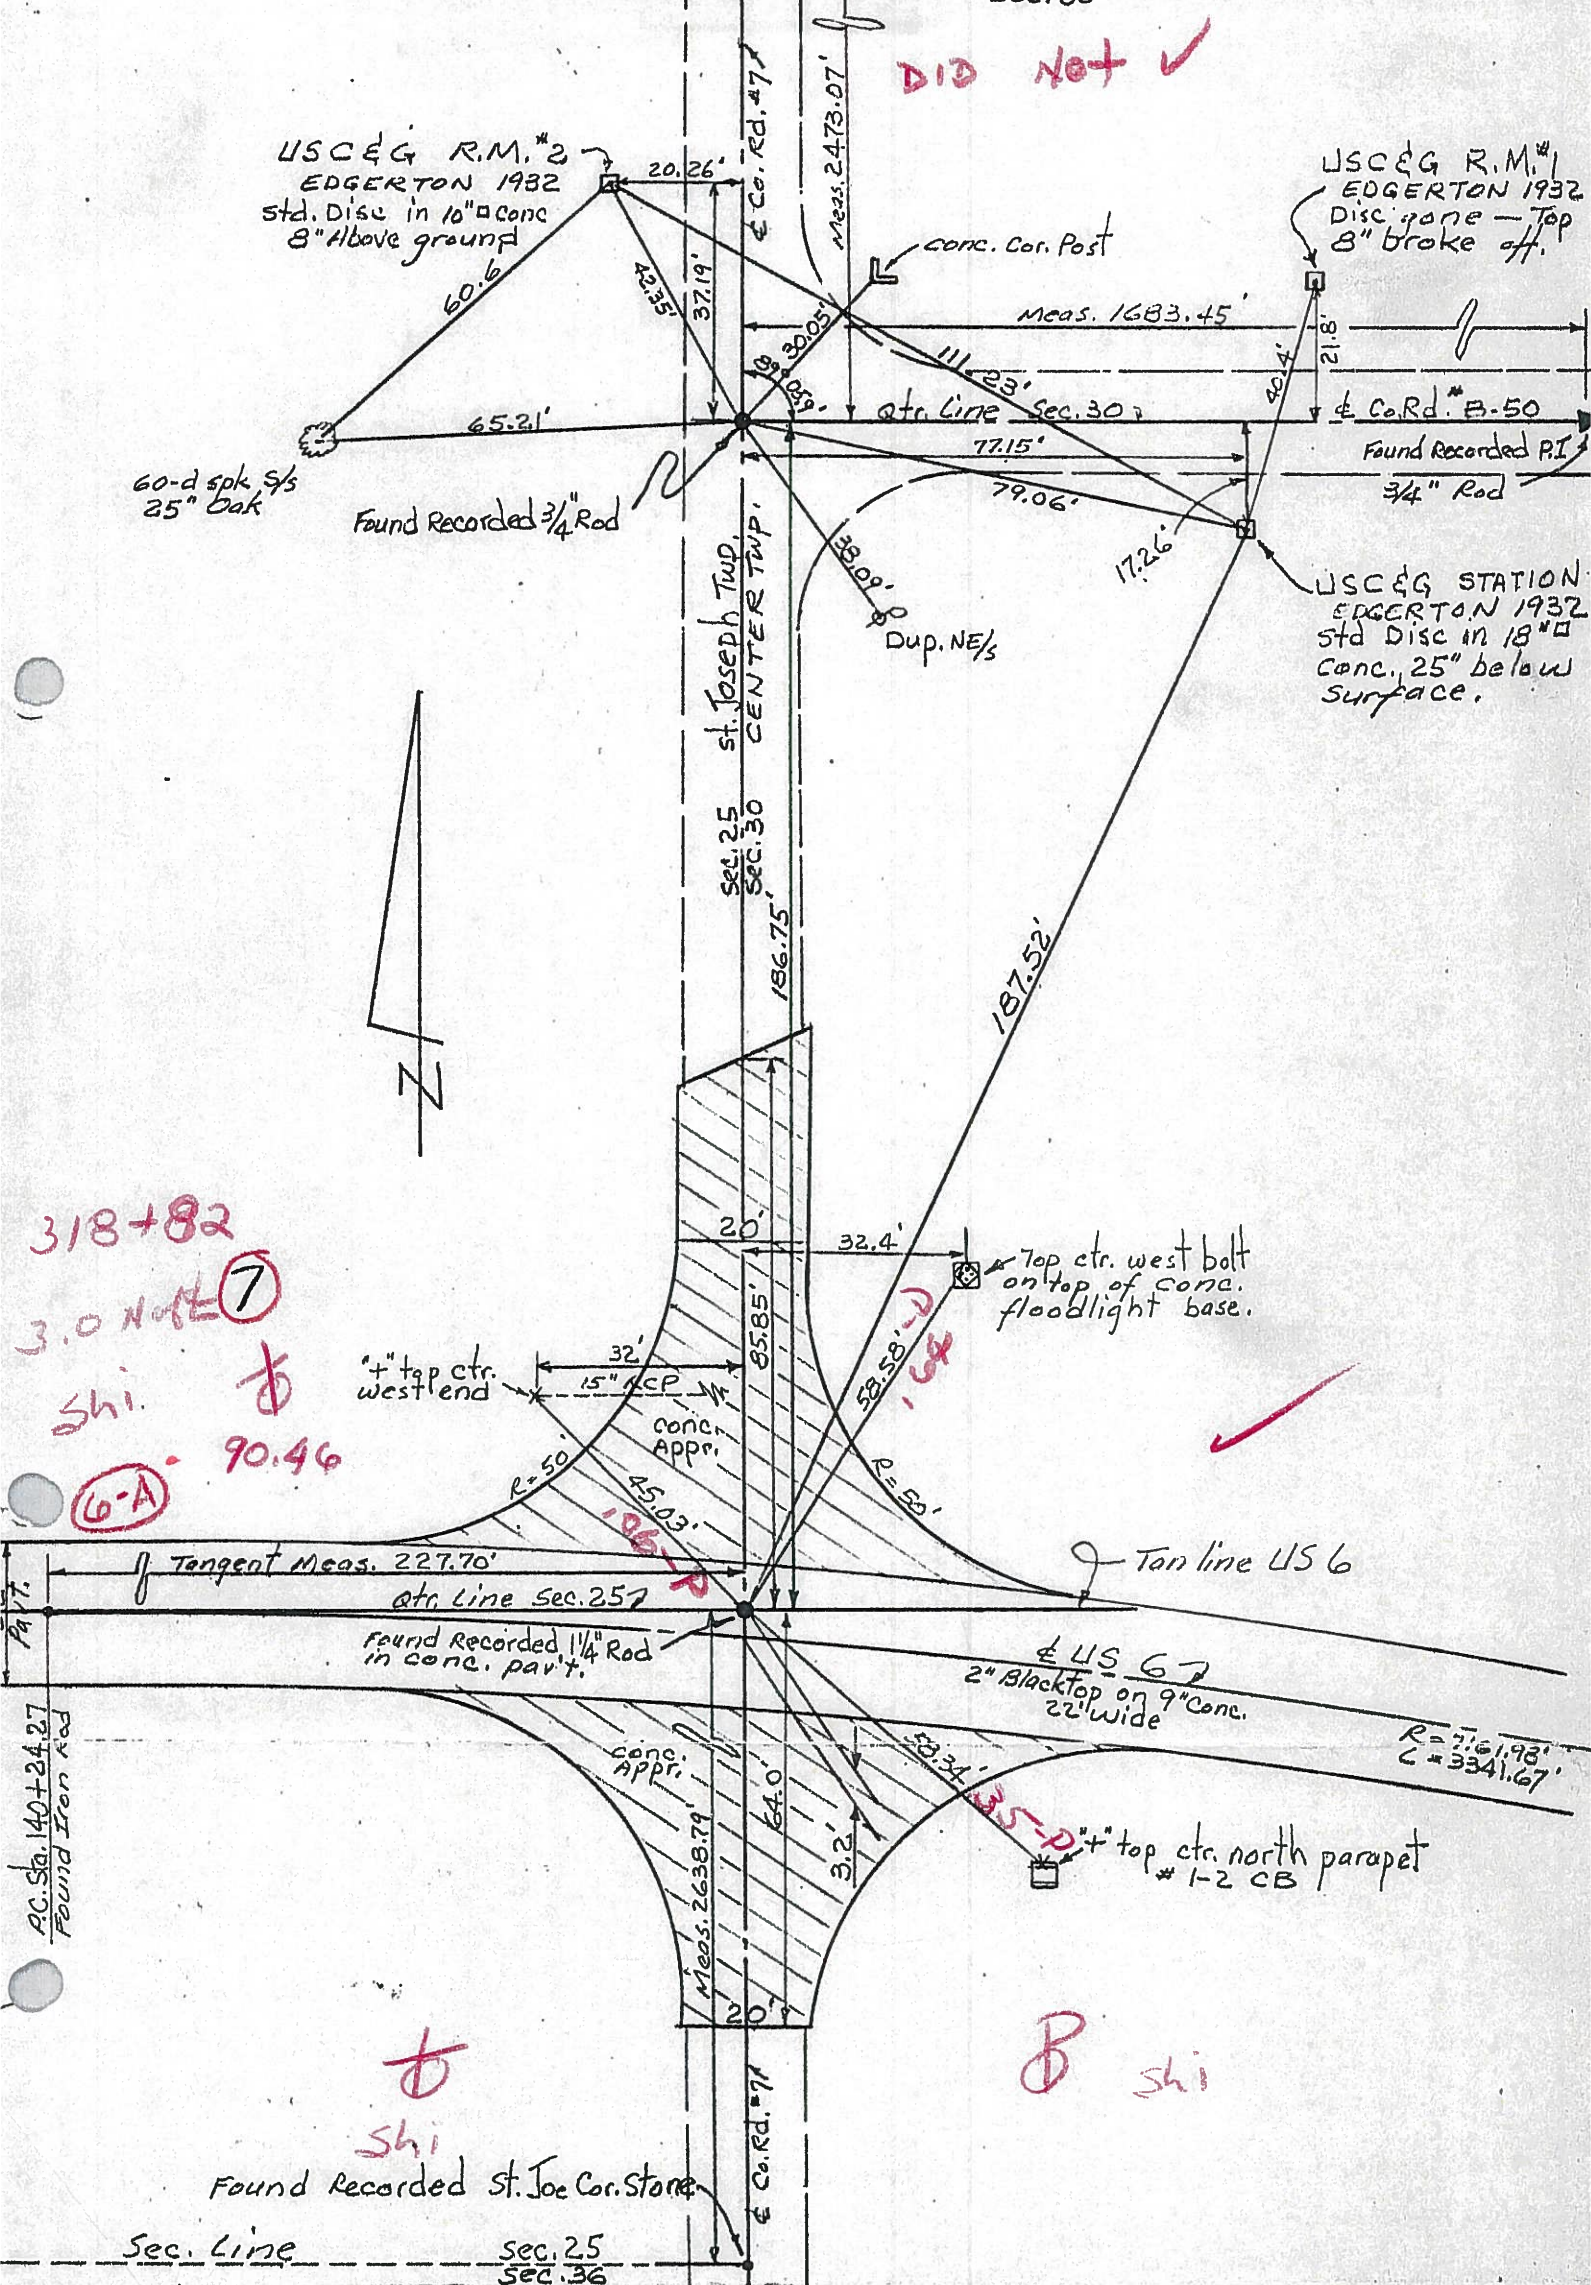 DID Not ✓
USC&G R.M.#2
EDGERTON 1932
Std. Disc in 10"□ conc
8" Above ground
20.26'
℄ Co. Rd. #7
Meas. 2473.07'
USC&G R.M.#1
EDGERTON 1932
Disc gone - Top
8" broke off.
conc. Cor. Post
60.6
42.35'
37.19'
30.05'
Meas. 1683.45'
111.23'
40.4'
21.8'
65.21'
Qtr. Line Sec. 30
℄ Co. Rd. # B-50
77.15'
79.06'
Found Recorded P.I
3/4" Rod
60-d spk S/s
25" Oak
Found Recorded 3/4" Rod
17.26'
38.09'
Dup. NE/s
USC&G STATION
EDGERTON 1932
Std Disc in 18"□
Conc., 25" below
Surface.
St. Joseph Twp.
CENTER TWP.
Sec. 25
Sec. 30
186.75'
187.52'
N
318+82
7
3.0
Shi.
90.46
6-A
20'
32.4'
Top ctr. west bolt
on top of conc.
floodlight base.
85.85'
58.58'
-D
.64
"+" top ctr.
west end
32'
15" RCP
Conc.
Appr.
R=50'
R=50'
45.03'
.06-P
Tangent Meas. 227.70'
Tan line US 6
Qtr. Line Sec. 25
Pav't.
Found Recorded 1¼" Rod
in conc. pav't.
℄ US 6
2" Blacktop on 9" Conc.
22' Wide
L = 3341.67'
P.C. Sta. 140+24.27
Found Iron Rod
Conc.
Appr.
58.34'
35-P
Meas. 2638.79'
64.0'
3.2'
"+" top ctr. north parapet
# 1-2 CB
20'
Shi
Shi
℄ Co. Rd. #7
Found Recorded St. Joe Cor. Stone
Sec. Line
Sec. 25
Sec. 36